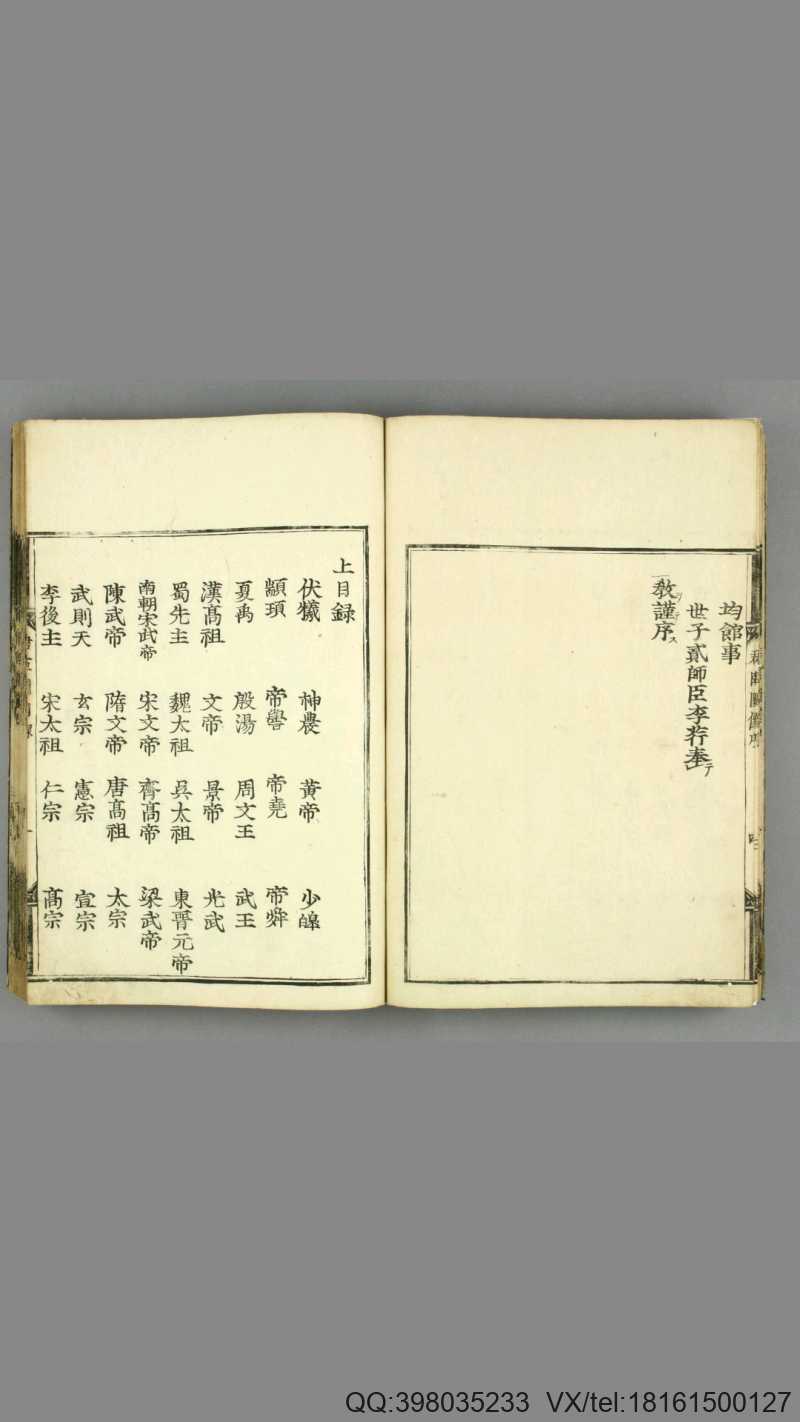 均館事
世子貳師臣李荇奉テ
教ヲ謹テ序ス
上目録
伏犧 神農 黃帝 少皡
顓頊 帝嚳 帝堯 帝舜
夏禹 殷湯 周文王 武王
漢髙祖 文帝 景帝 光武
蜀先主 魏太祖 呉太祖 東晋元帝
南朝宋武帝 宋文帝 齊髙帝 梁武帝
陳武帝 隋文帝 唐髙祖 太宗
武則天 玄宗 憲宗 宣宗
李後主 宋太祖 仁宗 髙宗
QQ:398035233 VX/tel:18161500127